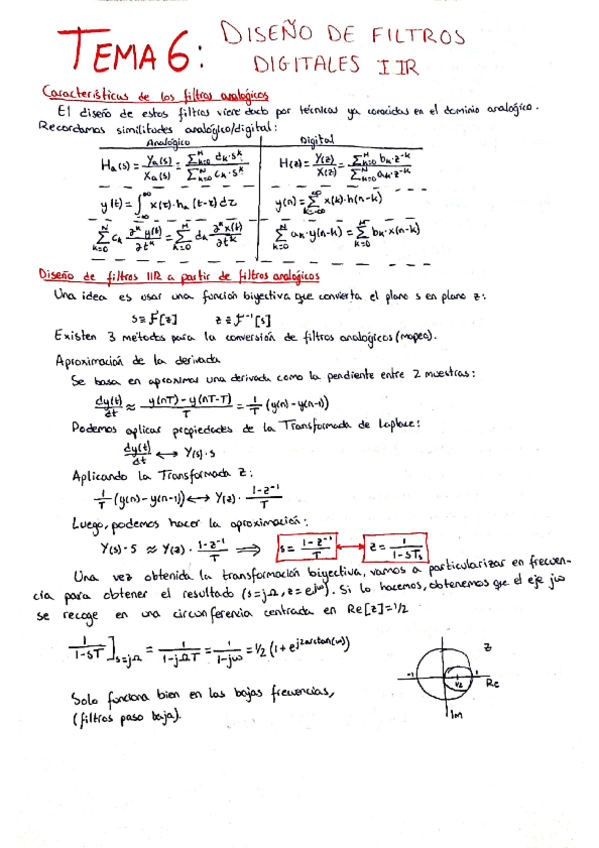 TEMA 6: DISEÑO DE FILTROS
DIGITALES IIR
Características de los filtros analógicos
El diseño de estos filtros viene dado por técnicas ya conocidas en el dominio analógico.
Recordamos similitudes analógico/digital:
Analógico Digital
Ha(s) = Ya(s)/Xa(s) = Σ_{k=0}^{M} dk·s^k / Σ_{k=0}^{N} ck·s^k H(z) = Y(z)/X(z) = Σ_{k=0}^{M} bk·z^-k / Σ_{k=0}^{N} ak·z^-k
y(t) = ∫_{-∞}^{∞} x(τ)·ha(t-τ) dτ y(n) = Σ_{k=-∞}^{∞} x(k)·h(n-k)
Σ_{k=0}^{N} ck ∂^k y(t)/∂t^k = Σ_{k=0}^{M} dk ∂^k x(t)/∂t^k Σ_{k=0}^{N} ak·y(n-k) = Σ_{k=0}^{M} bk·x(n-k)
Diseño de filtros IIR a partir de filtros analógicos
Una idea es usar una función biyectiva que convierta el plano s en plano z:
s≡f[z] z≡f^-1[s]
Existen 3 métodos para la conversión de filtros analógicos (mapeo).
Aproximación de la derivada
Se basa en aproximar una derivada como la pendiente entre 2 muestras:
dy(t)/dt ≈ y(nT)-y(nT-T)/T = 1/T (y(n)-y(n-1))
Podemos aplicar propiedades de la Transformada de Laplace:
dy(t)/dt ⟷ Y(s)·s
Aplicando la Transformada Z:
1/T (y(n)-y(n-1)) ⟷ Y(z)· 1-z^-1/T
Luego, podemos hacer la aproximación:
Y(s)·s ≈ Y(z)· 1-z^-1/T ⟹ s= 1-z^-1/T ⟷ z= 1/1-sTs
Una vez obtenida la transformación biyectiva, vamos a particularizar en frecuen-
cia para obtener el resultado (s=jΩ, z=e^jω). Si lo hacemos, obtenemos que el eje jω
se recoge en una circunferencia centrada en Re[z]=1/2
1/1-sT ]s=jΩ = 1/1-jΩT = 1/1-jω = 1/2 (1+e^j2arctan(ω))
Solo funciona bien en las bajas frecuencias,
(filtros paso baja).
z
-1 1/2 1 Re
Im